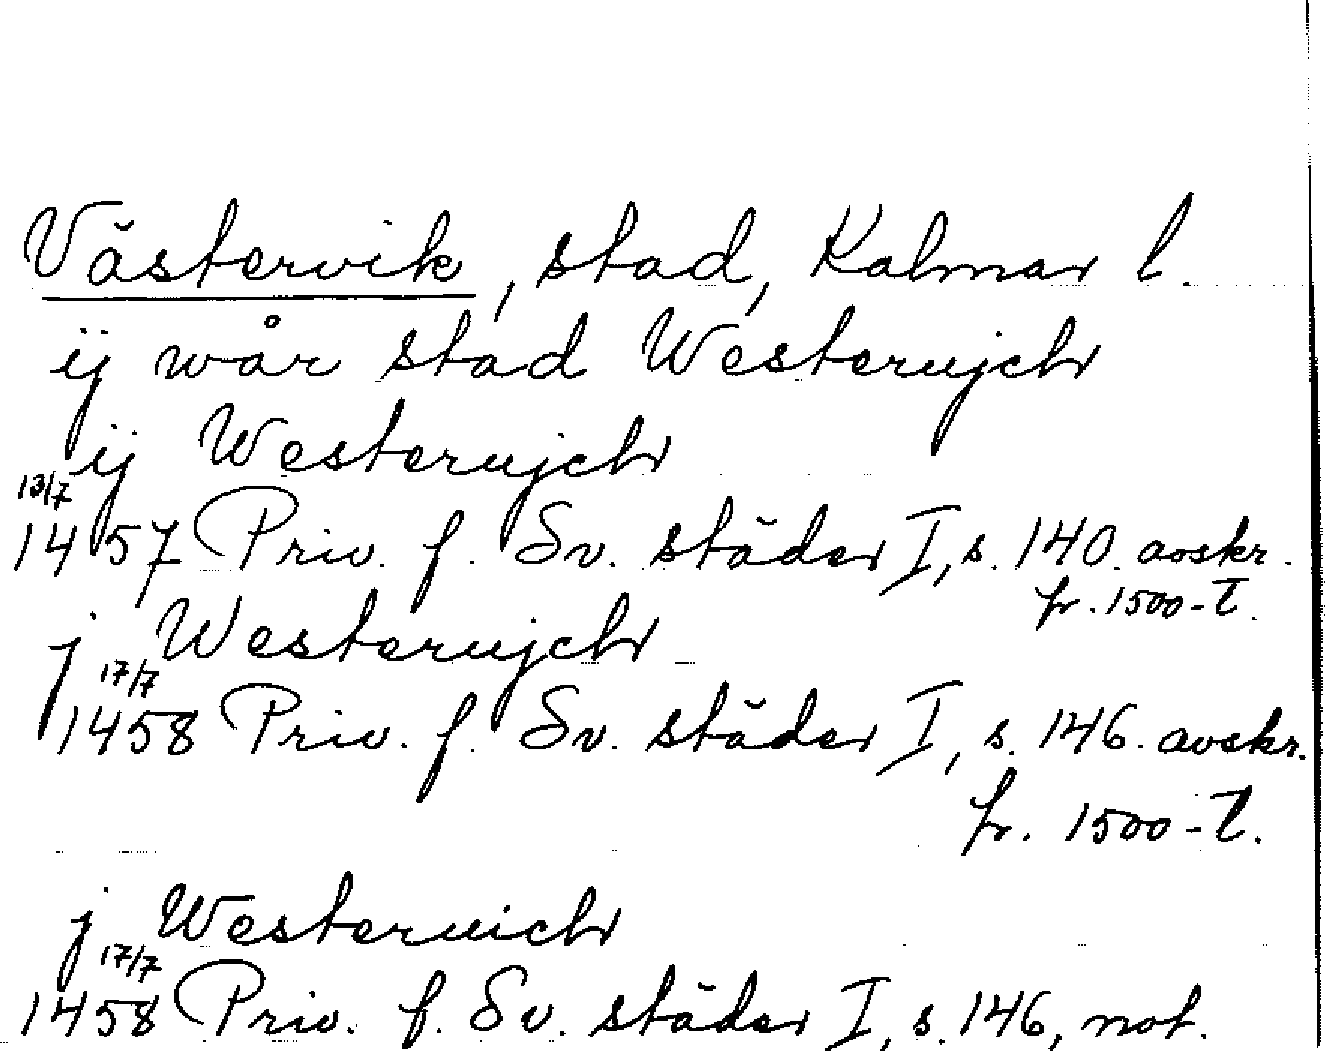 Västervik, stad, Kalmar l.
ij wår stad Westerujch
ij Westerujch
13/7
1457 Priv. f. Sv. städer I, s. 140. avskr.
fr. 1500-t.
j Westerujch
17/7
1458 Priv. f. Sv. städer I, s. 146. avskr.
fr. 1500-t.
j Westeruich
17/7
1458 Priv. f. Sv. städer I, s. 146, not.